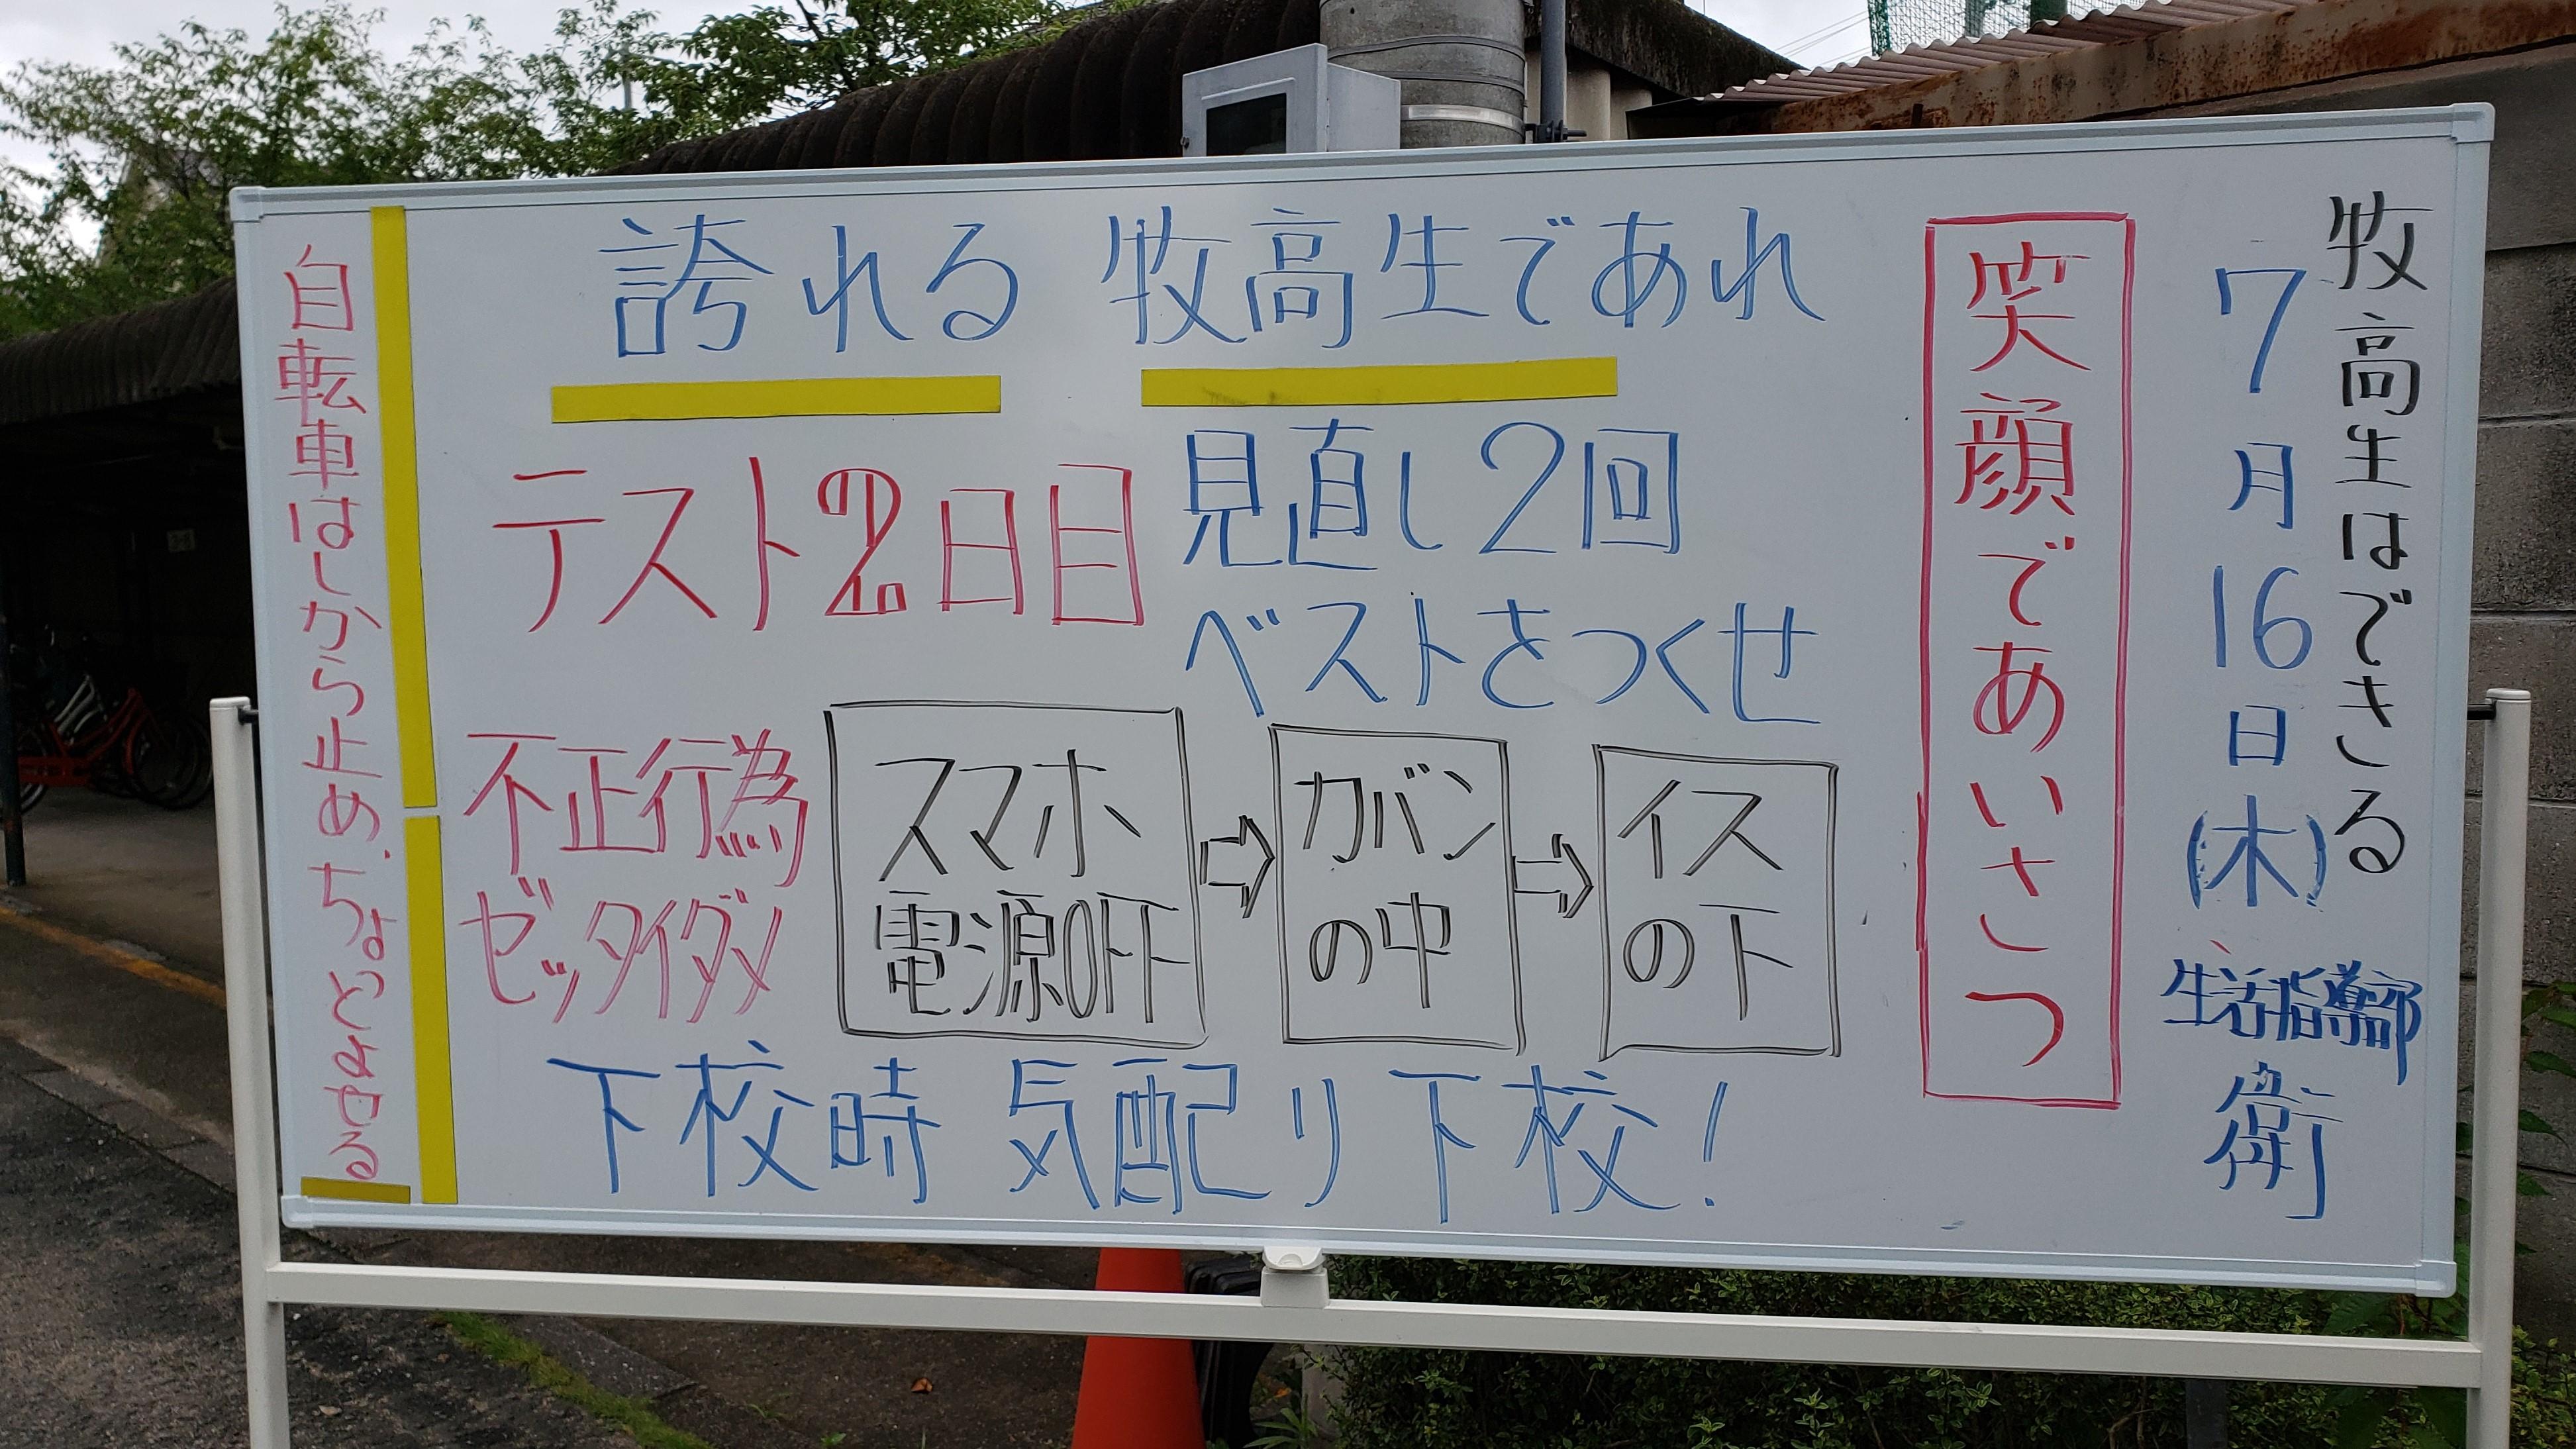 牧高生はできる
7月16日(木)
生活指導部
衛
笑顔であいさつ
誇れる 牧高生であれ
テストの2日目
見直し2回
ベストをつくせ
不正行為
ゼッタイダメ
スマホ
電源OFF
⇨
カバン
の中
⇨
イス
の下
下校時 気配り下校!
自転車はしから止め、ちょっとよせる